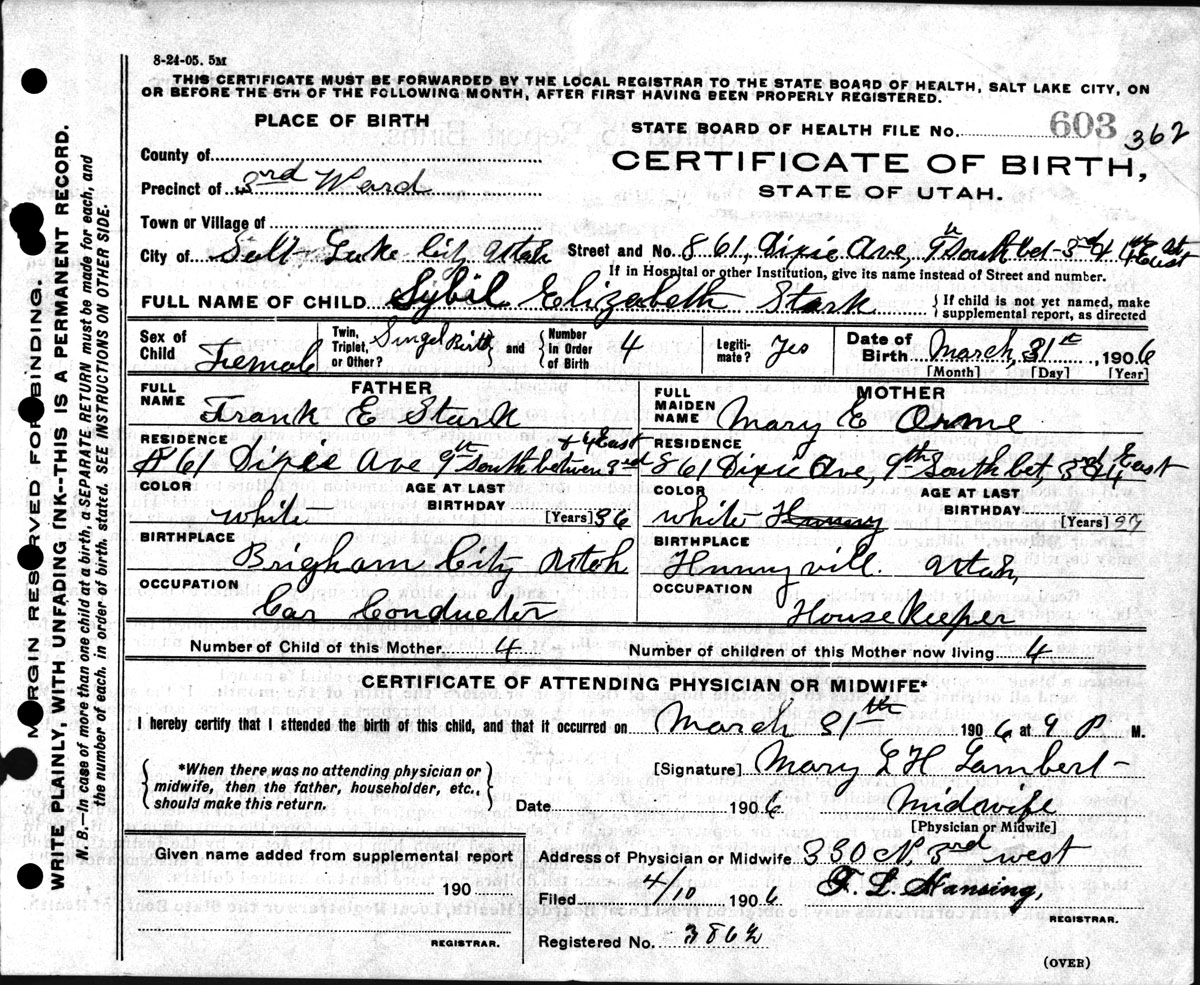 8-24-05. 5M
THIS CERTIFICATE MUST BE FORWARDED BY THE LOCAL REGISTRAR TO THE STATE BOARD OF HEALTH, SALT LAKE CITY, ON
OR BEFORE THE 5TH OF THE FOLLOWING MONTH, AFTER FIRST HAVING BEEN PROPERLY REGISTERED.
PLACE OF BIRTH
STATE BOARD OF HEALTH FILE No. 603 362
County of
CERTIFICATE OF BIRTH,
Precinct of 3rd Ward
STATE OF UTAH.
Town or Village of
City of Salt Lake City Utah Street and No. 861, Dixie Ave, 9th South bet 3rd 4th East
If in Hospital or other Institution, give its name instead of Street and number.
FULL NAME OF CHILD Sybil Elizabeth Stark { If child is not yet named, make
supplemental report, as directed
Sex of Child Femal Twin, Triplet, or Other? Singel Birth and { Number In Order of Birth 4 Legiti-mate? Yes Date of Birth March, 31st, 1906
[Month] [Day] [Year]
FATHER
FULL NAME Frank E Stark
RESIDENCE 861 Dixie Ave 9th South betwen 3rd + 4 East
COLOR white AGE AT LAST BIRTHDAY [Years] 36
BIRTHPLACE Brigham City Utah
OCCUPATION Car Conductor
MOTHER
FULL MAIDEN NAME Mary E Orme
RESIDENCE 861 Dixie Ave, 9th South bet, 3rd 4 East
COLOR white AGE AT LAST BIRTHDAY [Years]
BIRTHPLACE Hunnyvill. Utah,
OCCUPATION House Keeper
Number of Child of this Mother 4 Number of children of this Mother now living 4
CERTIFICATE OF ATTENDING PHYSICIAN OR MIDWIFE*
I hereby certify that I attended the birth of this child, and that it occurred on March 31th 1906 at 9 P M.
{ *When there was no attending physician or
midwife, then the father, householder, etc.,
should make this return. }
[Signature] Mary E H Lambert
Date 1906 Midwife
[Physician or Midwife]
Given name added from supplemental report
190
REGISTRAR.
Address of Physician or Midwife 330 N. 3rd west
Filed 4/10 1906 T. L. Hansing,
REGISTRAR.
Registered No. 3862
(OVER)
MARGIN RESERVED FOR BINDING.
WRITE PLAINLY, WITH UNFADING INK--THIS IS A PERMANENT RECORD.
N. B.—In case of more than one child at a birth, a SEPARATE RETURN must be made for each, and
the number of each, in order of birth, stated. SEE INSTRUCTIONS ON OTHER SIDE.